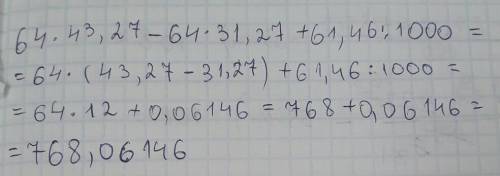 64 · 43,27 - 64 · 31,27 + 61,46 : 1000 =
= 64 · (43,27 - 31,27) + 61,46 : 1000 =
= 64 · 12 + 0,06146 = 768 + 0,06146 =
= 768,06146